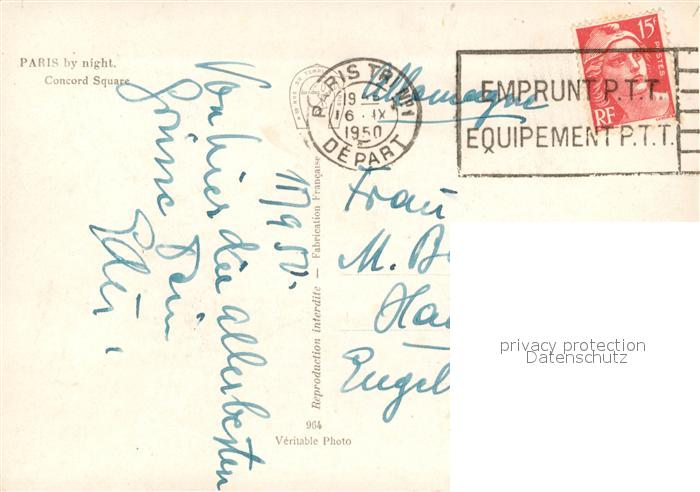 PARIS by night.
Concord Square
PARIS TRI
19
6 · IX
1950
DÉPART
EMPRUNT P.T.T.
EQUIPEMENT P.T.T.
15F
POSTES
RF
Allemagne
17/9 50.
Von hier die allerbesten
Grüsse Dein
Frau
M. Be
Ha
Engel
Reproduction interdite — Fabrication Française
964
Véritable Photo
privacy protection
Datenschutz